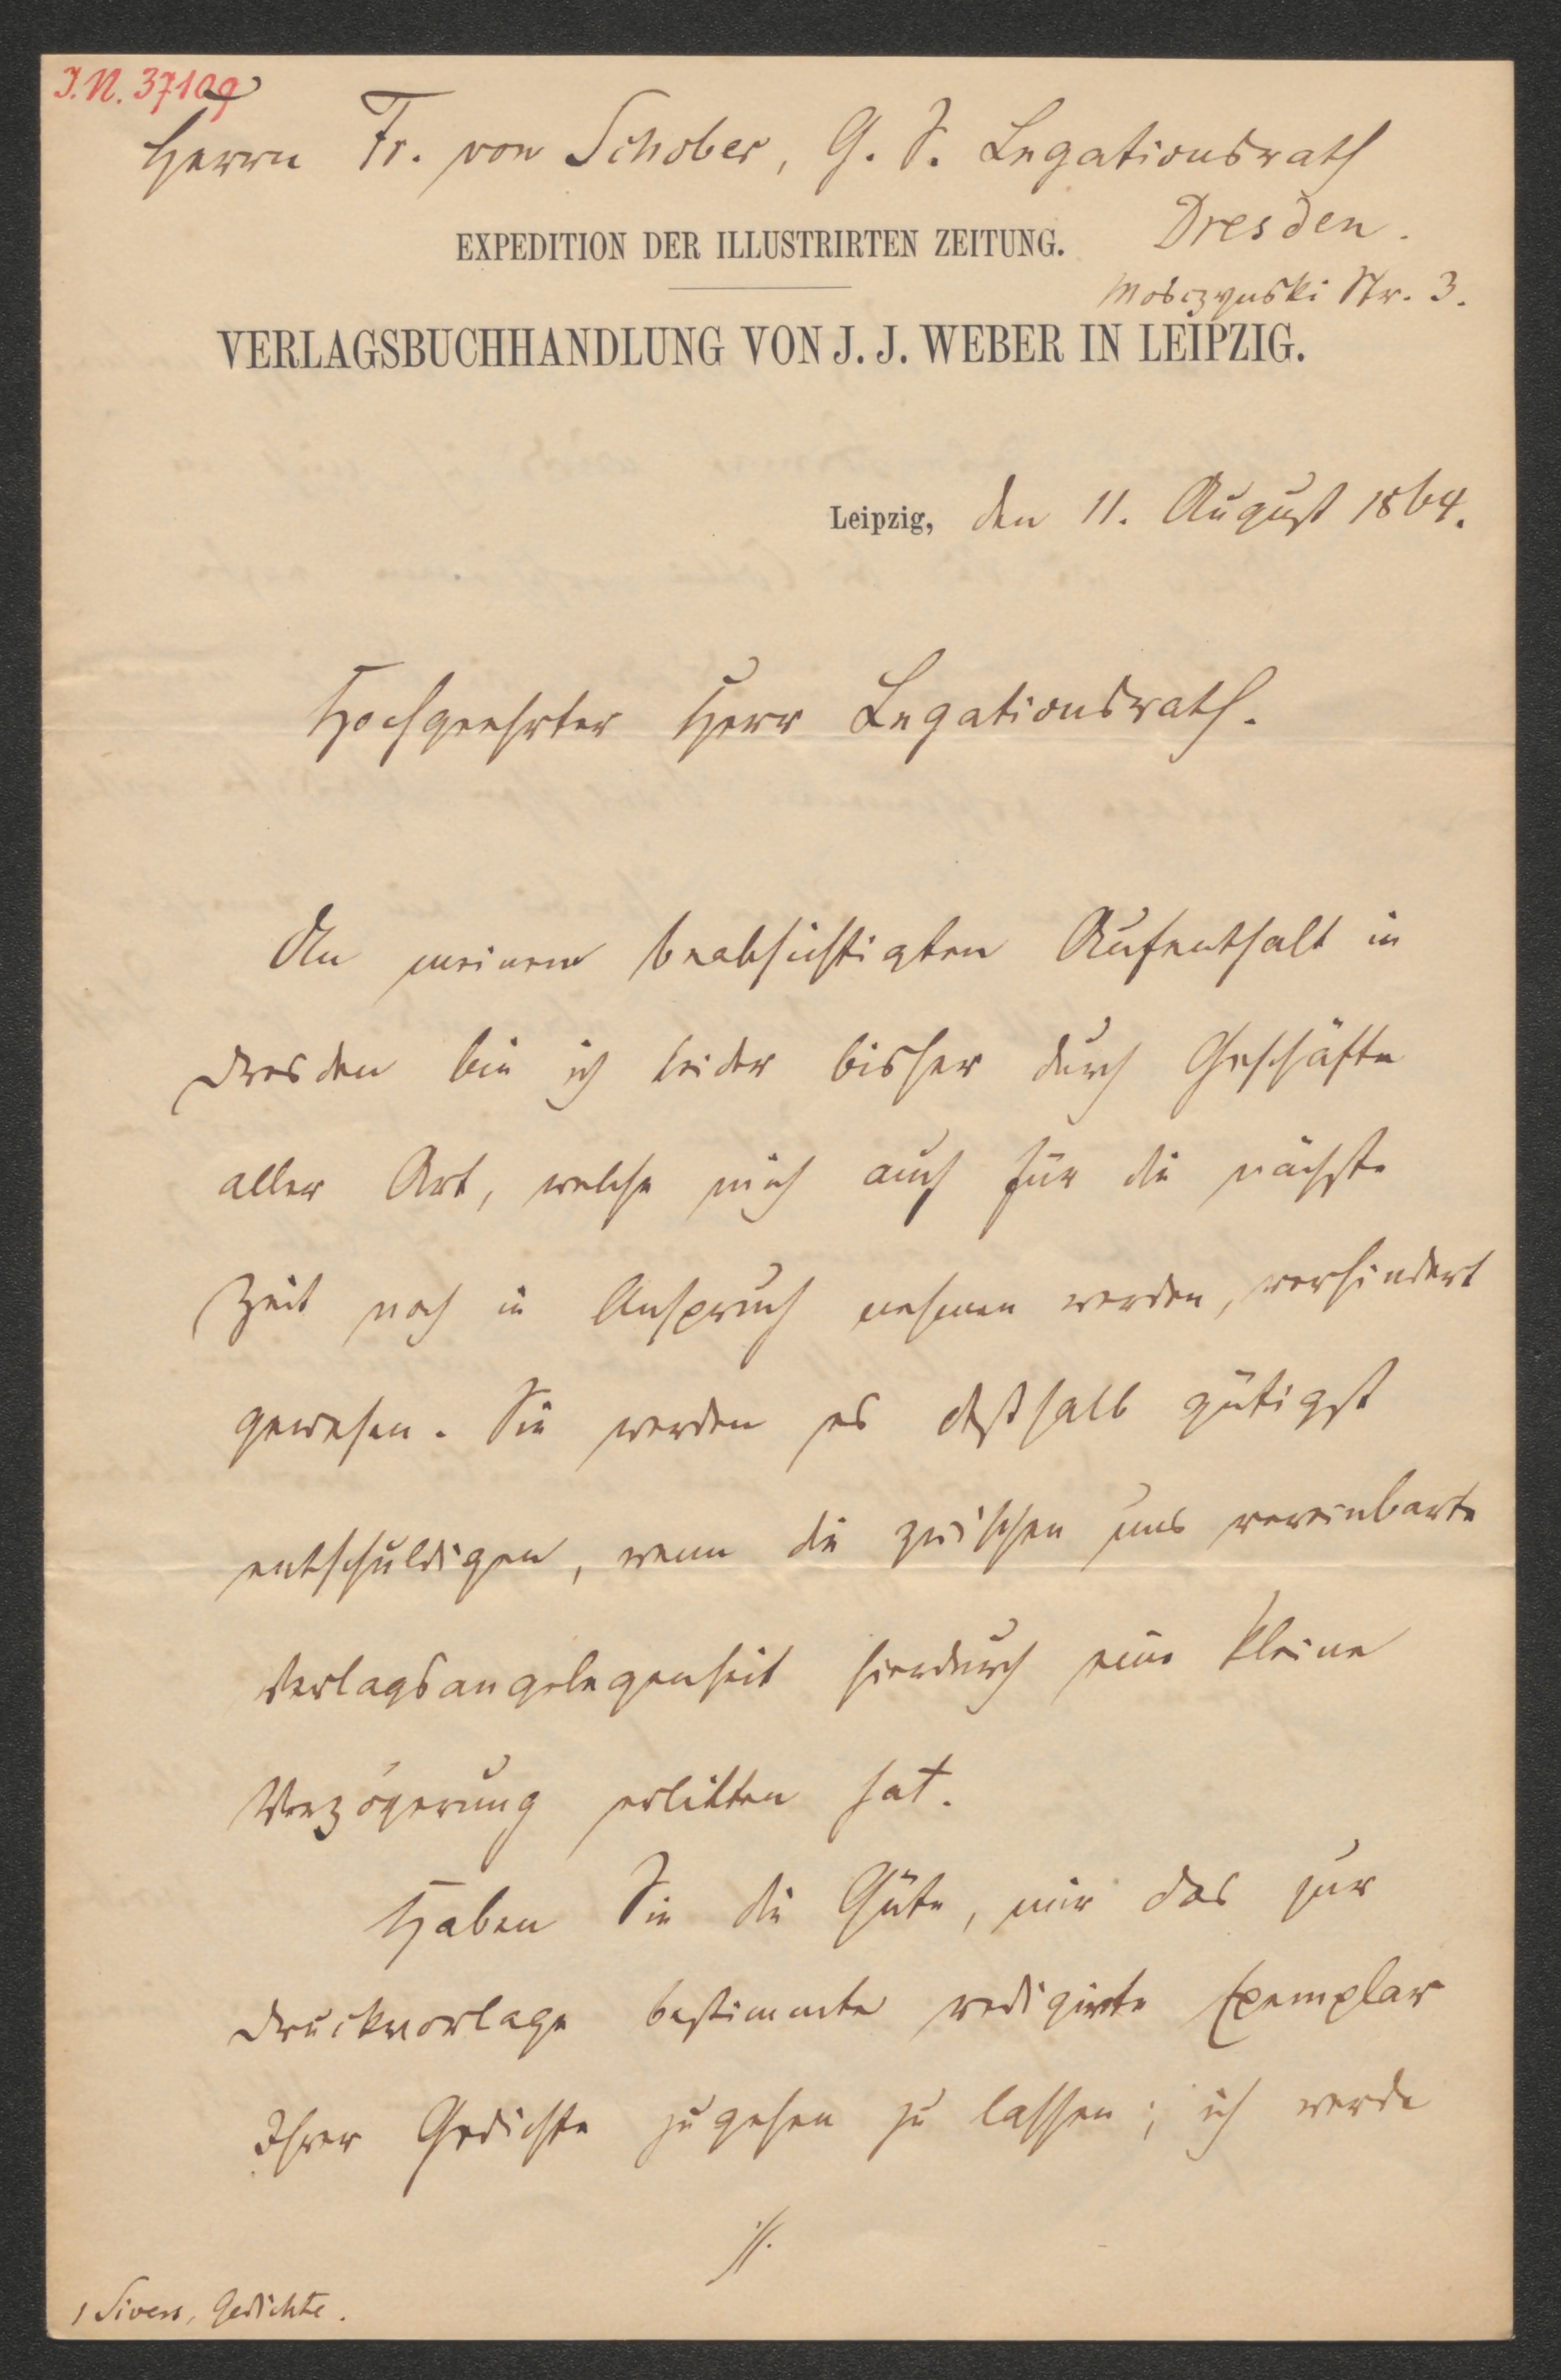 J.N. 37109
Herrn Fr. von Schober, G. S. Legationsrath
Dresden.
EXPEDITION DER ILLUSTRIRTEN ZEITUNG.
Mosczynski Str. 3.
VERLAGSBUCHHANDLUNG VON J. J. WEBER IN LEIPZIG.
Leipzig, den 11. August 1864.
Hochgeehrter Herr Legationsrath.
An meinem beabsichtigten Aufenthalt in
Dresden bin ich leider bisher durch Geschäfte
aller Art, welche mich auch für die nächste
Zeit noch in Anspruch nehmen werden, verhindert
gewesen. Sie werden es deßhalb gütigst
entschuldigen, wenn die zwischen uns vereinbarte
Verlagsangelegenheit hierdurch eine kleine
Verzögerung erlitten hat.
Haben Sie die Güte, mir das zur
Druckvorlage bestimmte redigirte Exemplar
Ihrer Gedichte zugehen zu lassen; ich werde
·/.
1 Sivers, Gedichte.